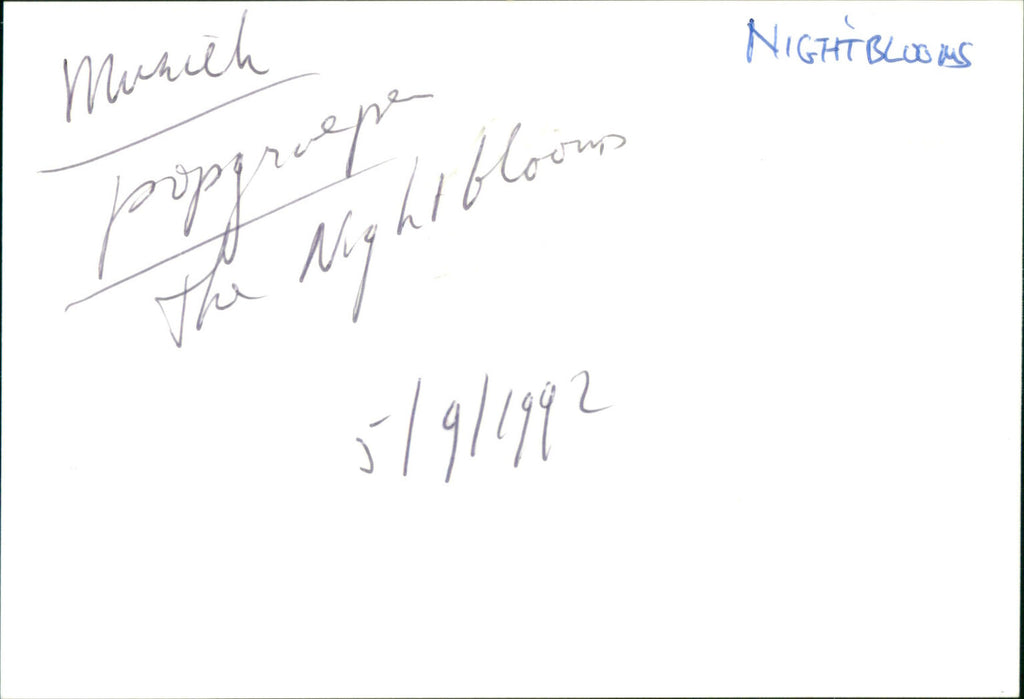 NIGHTBLOOMS
Muziek
popgroepen
The Nightblooms
5/9/1992